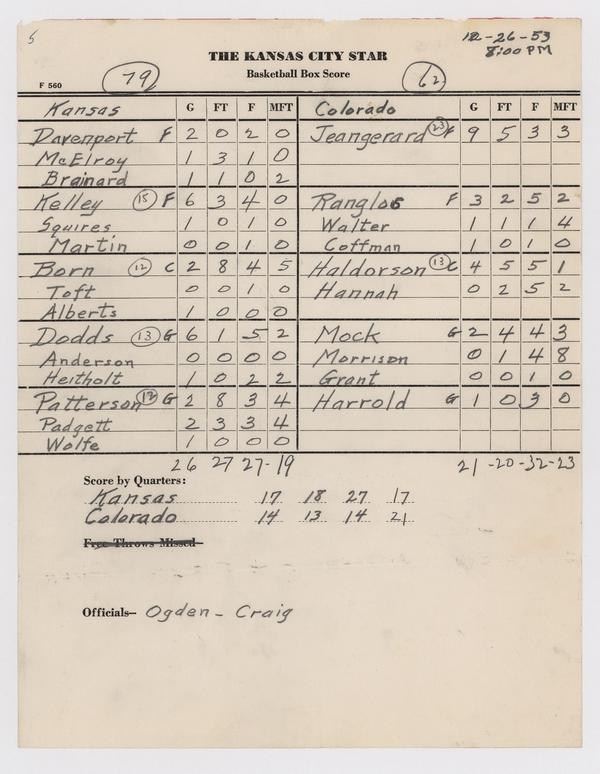 5
12-26-53
8:00 PM
THE KANSAS CITY STAR
Basketball Box Score
F 560
79
62
Kansas G FT F MFT Colorado G FT F MFT
Davenport F 2 0 2 0 Jeangerard 23 F 9 5 3 3
McElroy 1 3 1 0
Brainard 1 1 0 2
Kelley 15 F 6 3 4 0 Ranglos F 3 2 5 2
Squires 1 0 1 0 Walter 1 1 1 4
Martin 0 0 1 0 Coffman 1 0 1 0
Born 12 C 2 8 4 5 Haldorson 13 C 4 5 5 1
Toft 0 0 1 0 Hannah 0 2 5 2
Alberts 1 0 0 0
Dodds 13 G 6 1 5 2 Mock G 2 4 4 3
Anderson 0 0 0 0 Morrison 0 1 4 8
Heitholt 1 0 2 2 Grant 0 0 1 0
Patterson 12 G 2 8 3 4 Harrold G 1 0 3 0
Padgett 2 3 3 4
Wolfe 1 0 0 0
26 27 27-19 21-20-32-23
Score by Quarters:
Kansas 17 18 27 17
Colorado 14 13 14 21
Free Throws Missed
Officials— Ogden - Craig